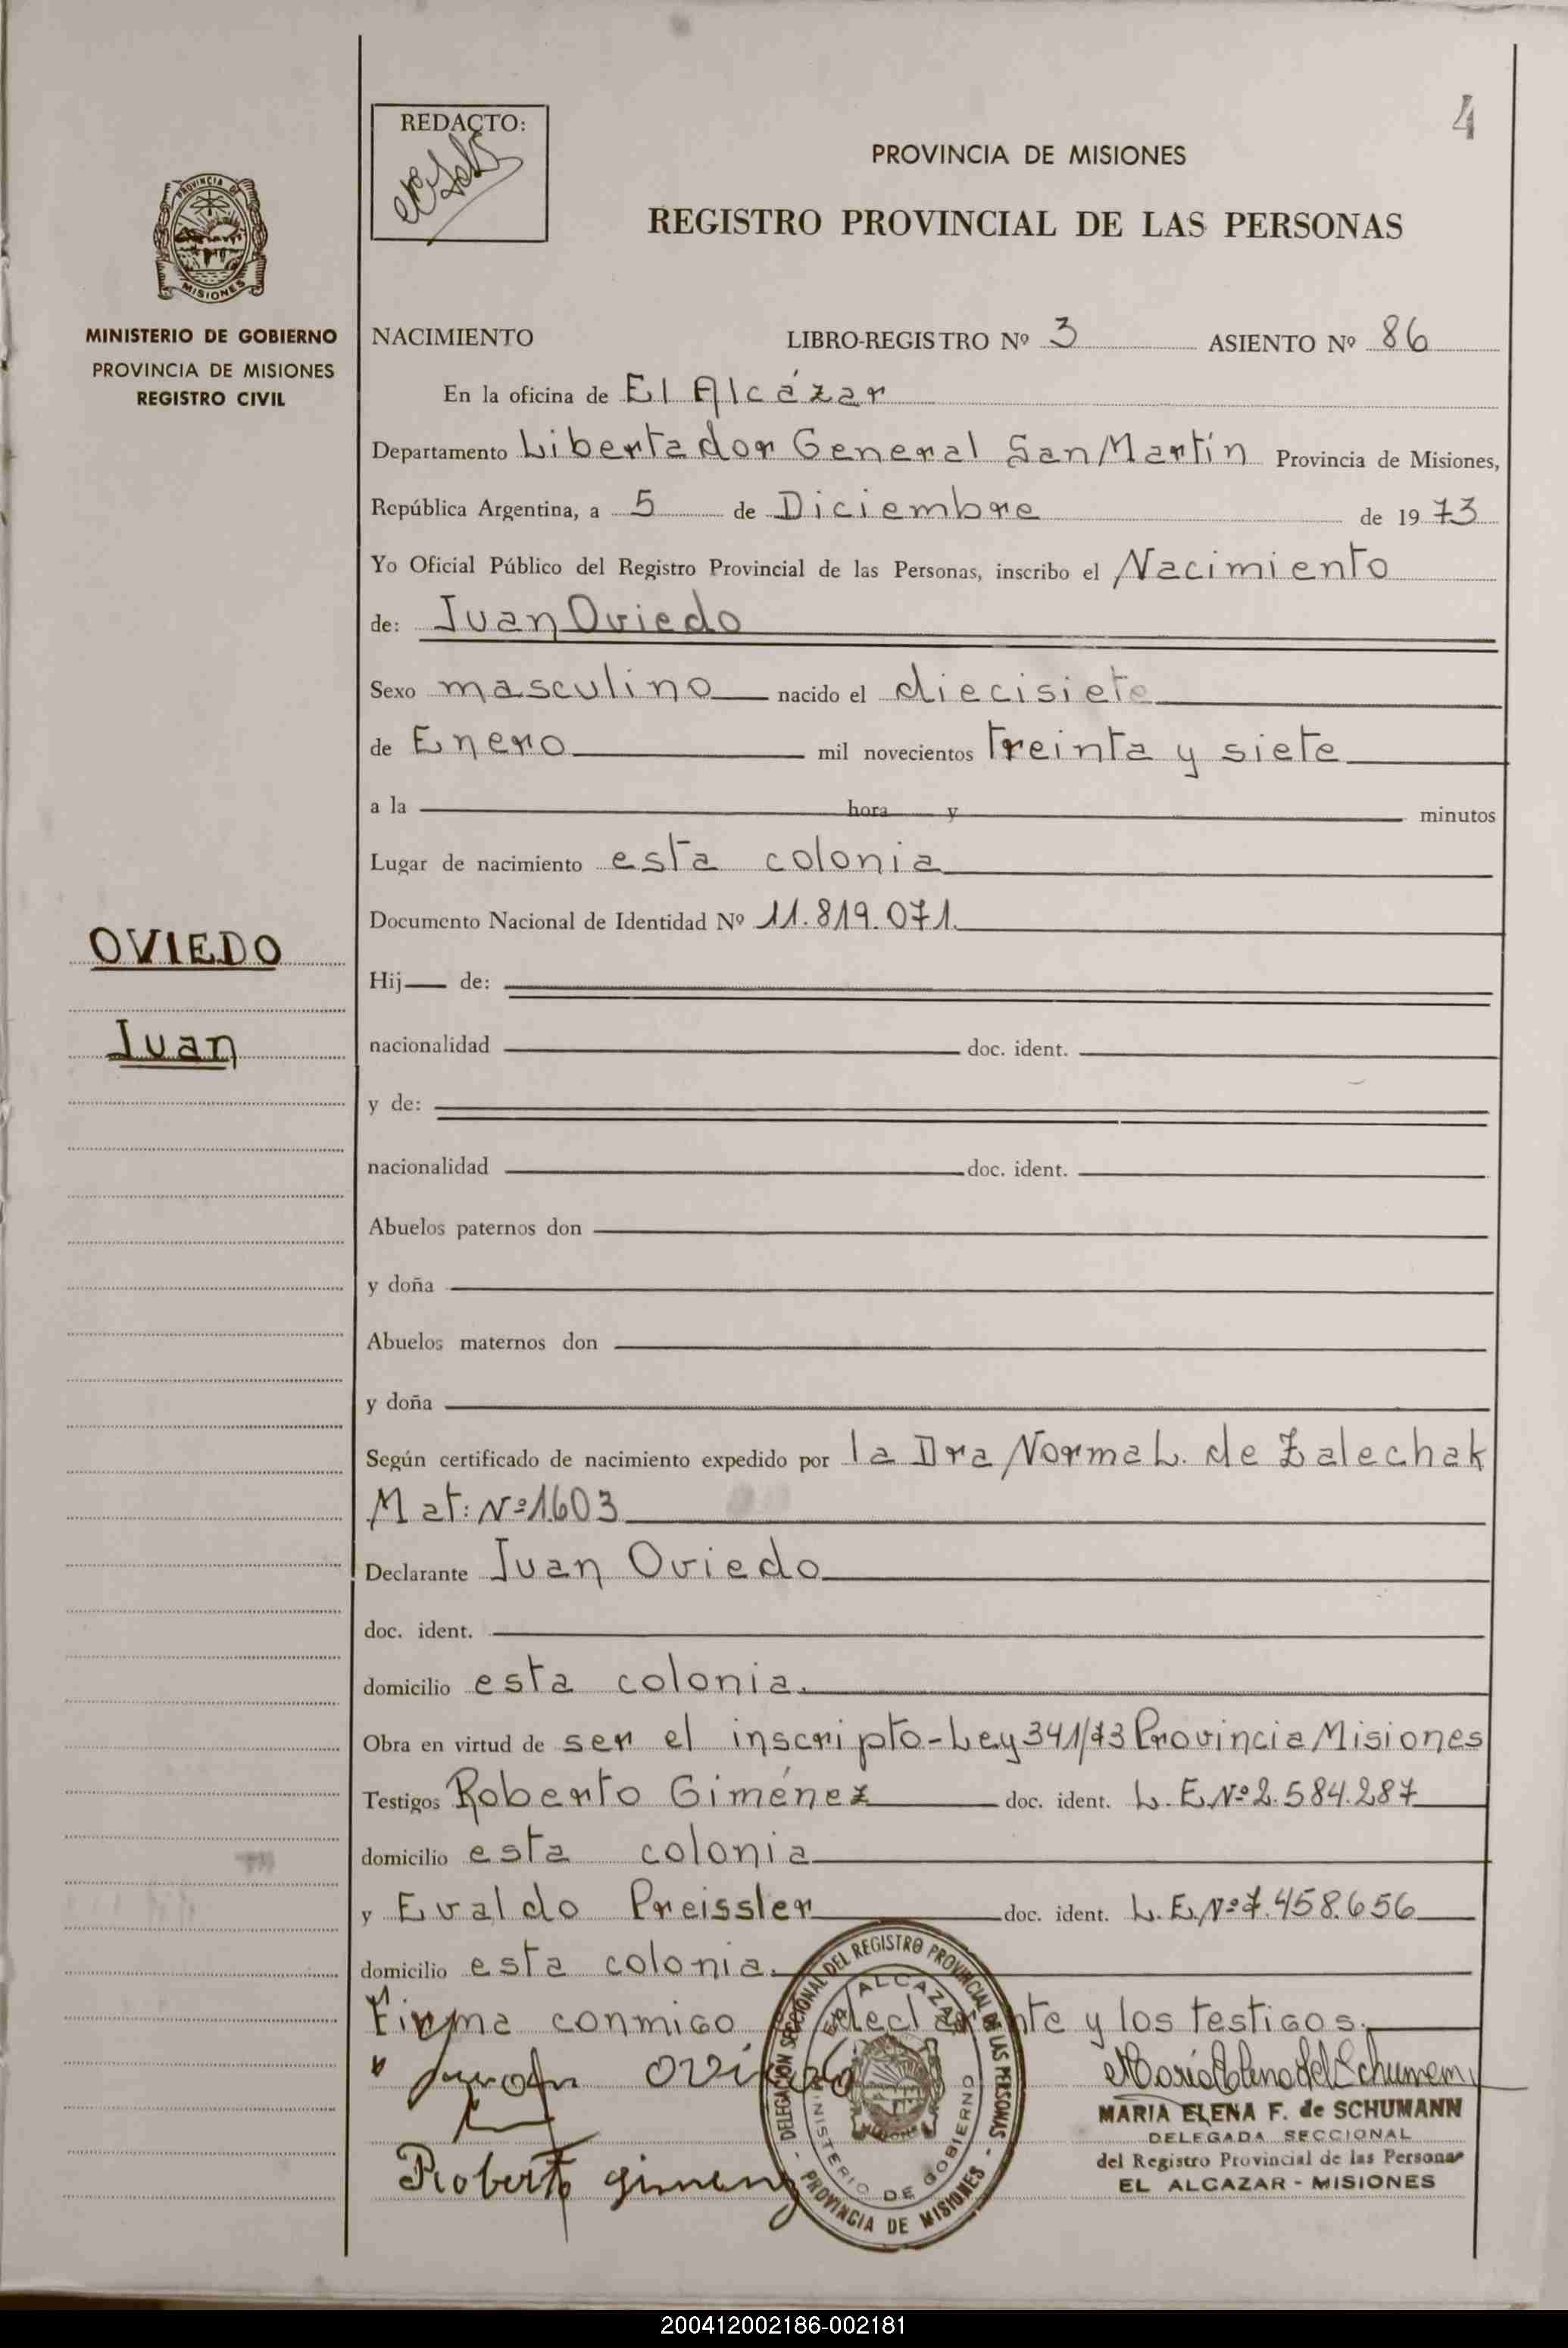 4
REDACTO:
PROVINCIA DE MISIONES
REGISTRO PROVINCIAL DE LAS PERSONAS
PROVINCIA DE
MISIONES
MINISTERIO DE GOBIERNO
PROVINCIA DE MISIONES
REGISTRO CIVIL
NACIMIENTO LIBRO-REGISTRO Nº 3 ASIENTO Nº 86
En la oficina de El Alcázar
Departamento Libertador General San Martín Provincia de Misiones,
República Argentina, a 5 de Diciembre de 1973
Yo Oficial Público del Registro Provincial de las Personas, inscribo el Nacimiento
de: Juan Oviedo
Sexo masculino nacido el diecisiete
de Enero mil novecientos treinta y siete
a la hora y minutos
Lugar de nacimiento esta colonia
Documento Nacional de Identidad Nº 11.819.071.
OVIEDO
Juan
Hij de:
nacionalidad doc. ident.
y de:
nacionalidad doc. ident.
Abuelos paternos don
y doña
Abuelos maternos don
y doña
Según certificado de nacimiento expedido por la Dra Norma L. de Zalechak
Mat: Nº 1603
Declarante Juan Oviedo
doc. ident.
domicilio esta colonia.
Obra en virtud de ser el inscripto-Ley 341/73 Provincia Misiones
Testigos Roberto Giménez doc. ident. L. E. Nº 2.584.287
domicilio esta colonia
y Evaldo Preissler doc. ident. L. E. Nº 7.458.656
domicilio esta colonia.
Firma conmigo declarante y los testigos.
Juan Oviedo
Roberto Gimenez
DELEGACIÓN SECCIONAL DEL REGISTRO PROVINCIAL DE LAS PERSONAS - PROVINCIA DE MISIONES -
EL ALCAZAR
MINISTERIO DE GOBIERNO
Maria Elena de Schumann
MARIA ELENA F. de SCHUMANN
DELEGADA SECCIONAL
del Registro Provincial de las Personas
EL ALCAZAR - MISIONES
200412002186-002181